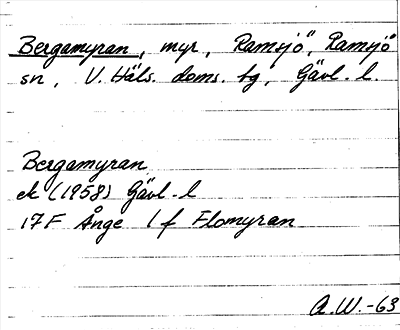 Bergamyran, myr, Ramsjö, Ramsjö
sn, V. Häls. doms. tg, Gävl. l
Bergamyran
ek (1958) Gävl. l
17F Ånge 1 f Flomyran
A.W.-63